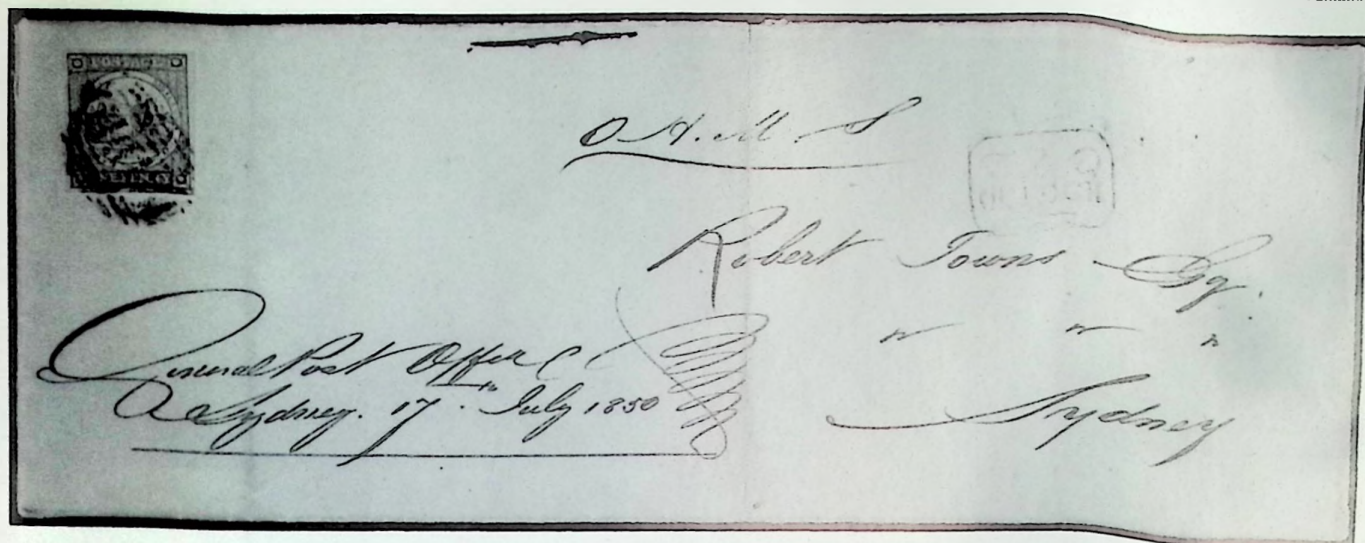 POSTAGE
O. H. M. S
Robert Towns Esq.
" " "
Sydney
General Post Office
Sydney. 17th July 1850